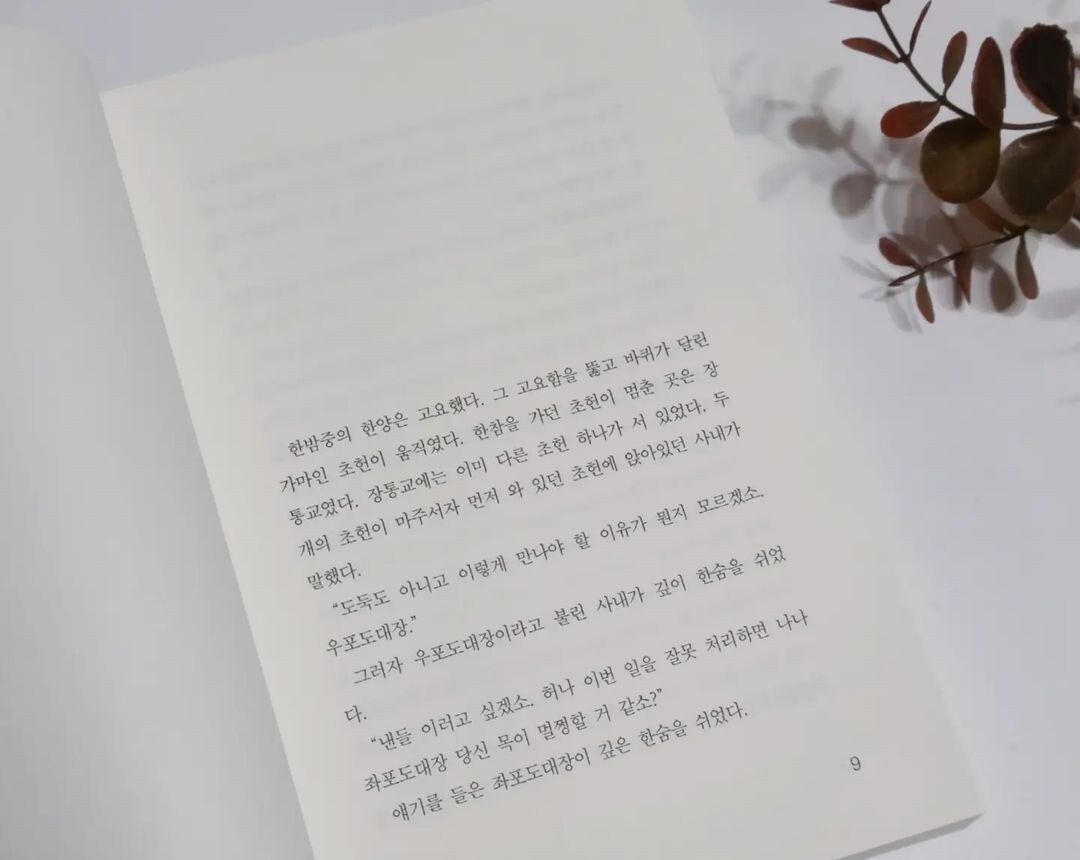 한밤중의 한양은 고요했다. 그 고요함을 뚫고 바퀴가 달린
가마인 초헌이 움직였다. 한참을 가던 초헌이 멈춘 곳은 장
통교였다. 장통교에는 이미 다른 초헌 하나가 서 있었다. 두
개의 초헌이 마주서자 먼저 와 있던 초헌에 앉아있던 사내가
말했다.
“도둑도 아니고 이렇게 만나야 할 이유가 뭔지 모르겠소.
우포도대장.”
그러자 우포도대장이라고 불린 사내가 깊이 한숨을 쉬었
다.
“낸들 이러고 싶겠소. 허나 이번 일을 잘못 처리하면 나나
좌포도대장 당신 목이 멀쩡할 거 같소?”
얘기를 들은 좌포도대장이 깊은 한숨을 쉬었다.
9